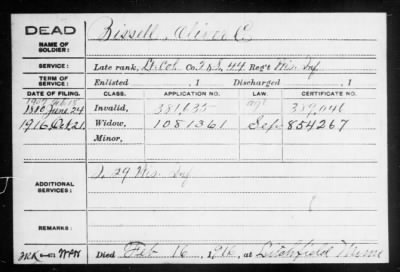 DEAD
NAME OF SOLDIER:
Bissell, Oliver C
SERVICE:
Late rank, Lt. Col. Co. F&S, 44 Reg't Wis. Inf
TERM OF SERVICE:
Enlisted , 1 Discharged , 1
DATE OF FILING. CLASS. APPLICATION NO. LAW. CERTIFICATE NO.
1907 Feb 18
1880 June 24 Invalid, 381,635
1916 Oct 21 Widow, 1081361 Sep 854267
Minor,
ADDITIONAL SERVICES:
29 Wis. Inf
REMARKS:
Died Feb 16, 1916, at Litchfield Minn